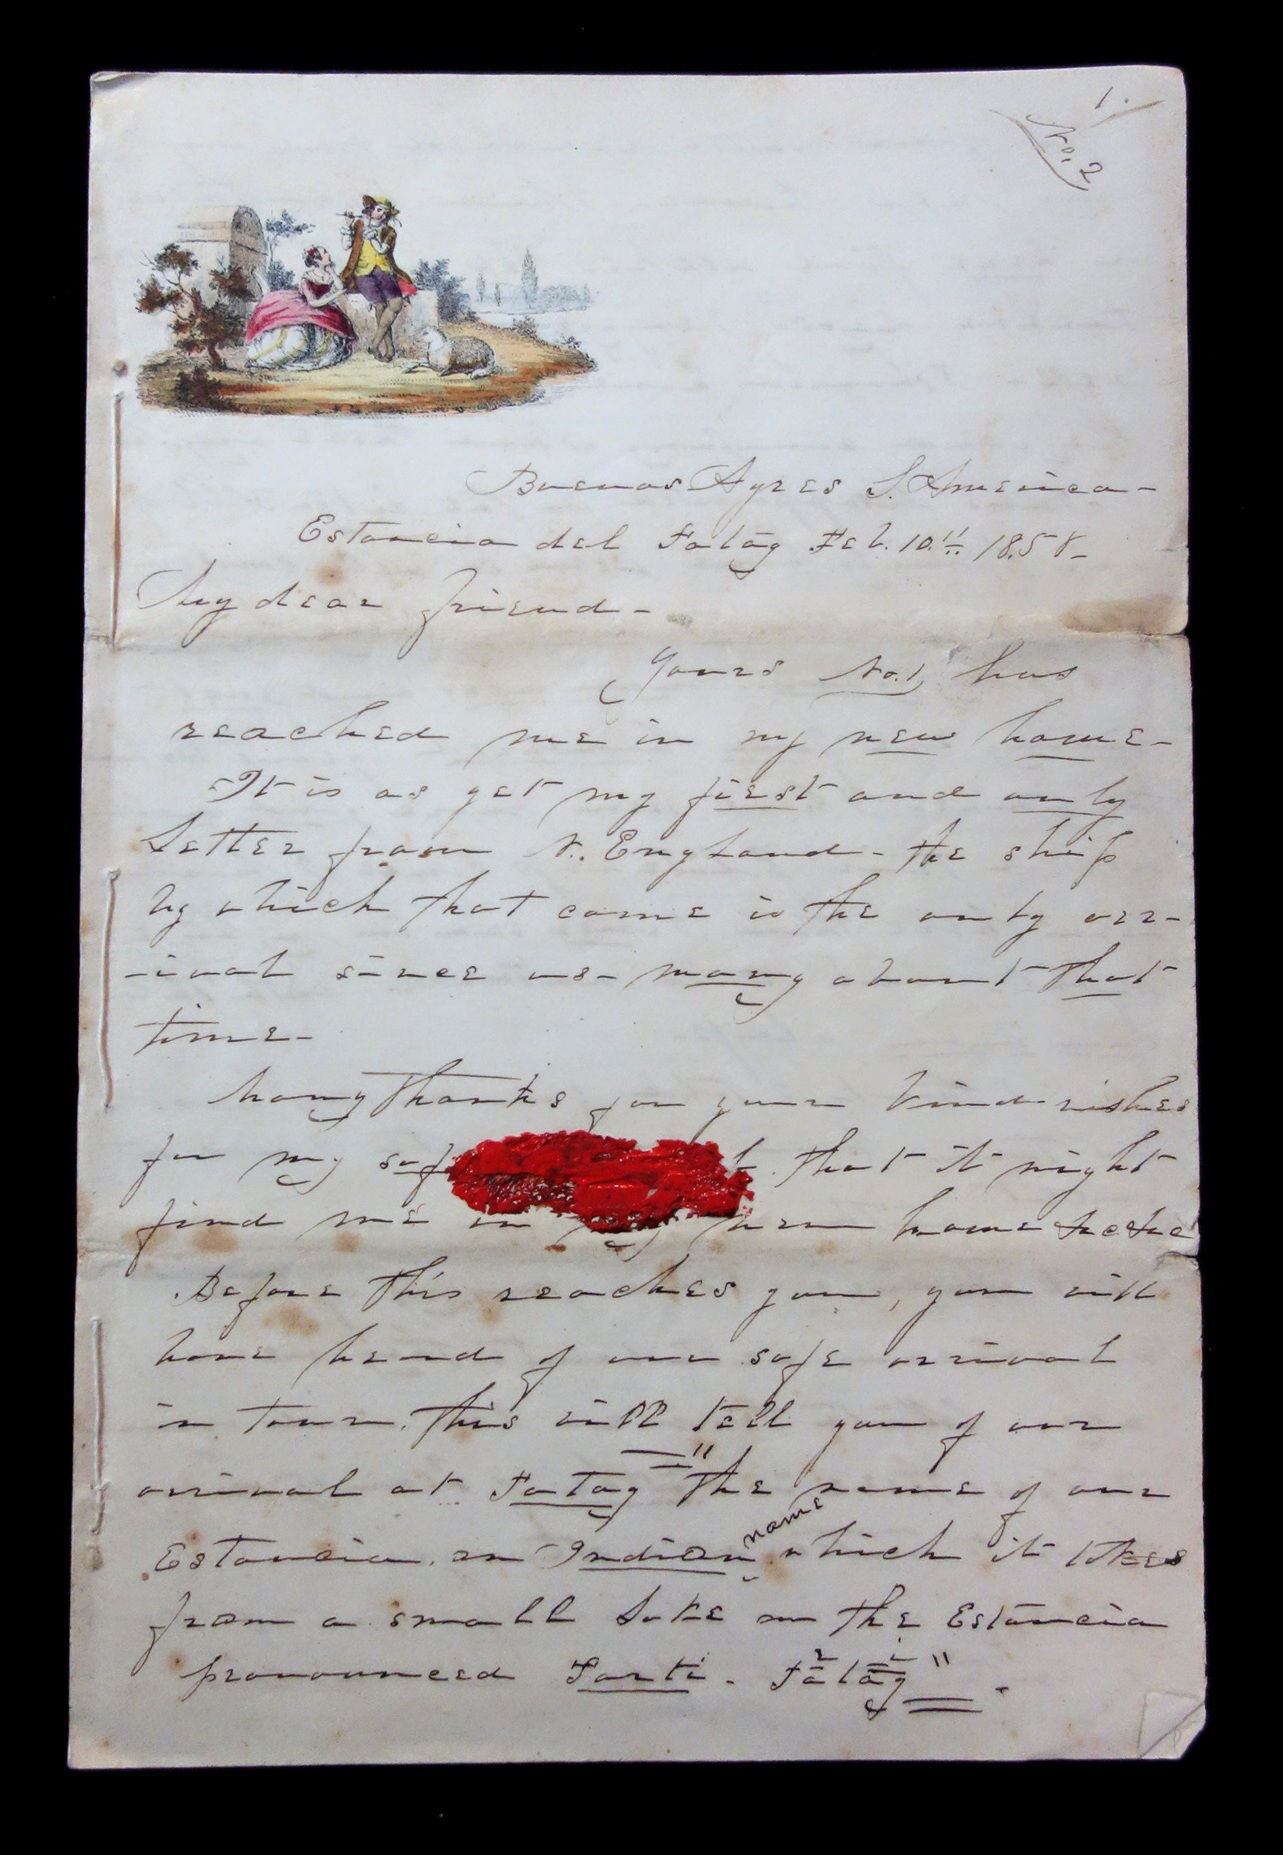 1.
No. 2
Buenos Ayres S. America-
Estancia del Fatāg Feb. 10.th 1858-
My dear friend-
Yours No. 1, has
reached me in my new home-
It is as yet my first and only
Letter from N. England- the ship
by which that came is the only arr-
-ival since us- many about that
time-
Many thanks for your kind wishes
for my saf that it might
find me in my new home &c &c
Before this reaches you, you will
have heard of our safe arrival
in town, this will tell you of our
arrival at Fatag" the name of our
Estancia, an Indian name which it takes
from a small Lake on the Estāncia
pronounced Farti. Fātāg"